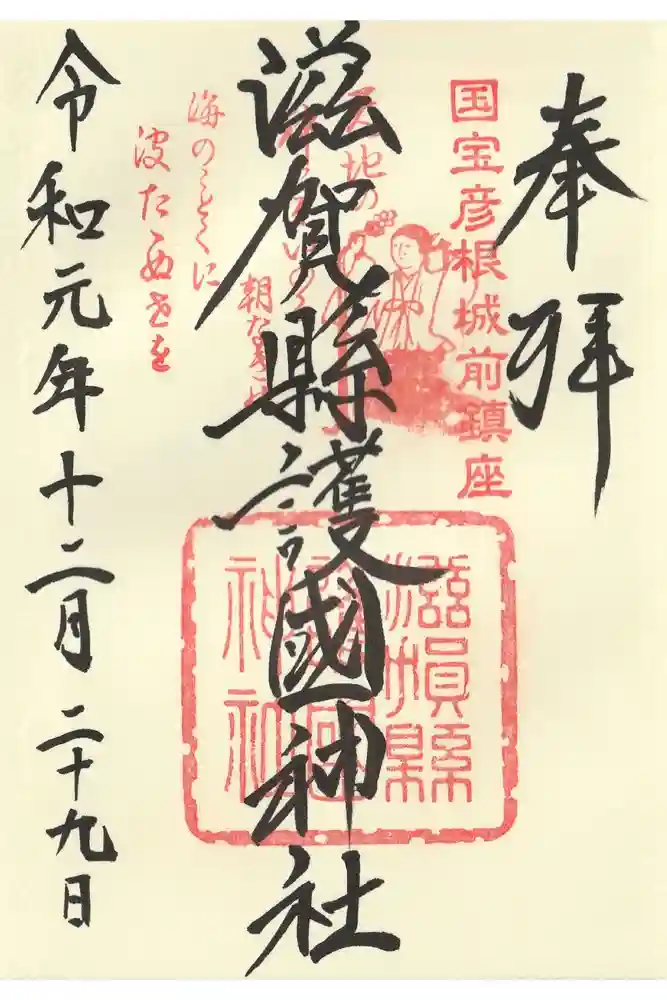 奉拝
国宝彦根城前鎮座
滋賀縣護國神社
滋賀縣
護國
神社
天地の
朝な
海のことくに
波たゝぬ世を
令和元年十二月二十九日